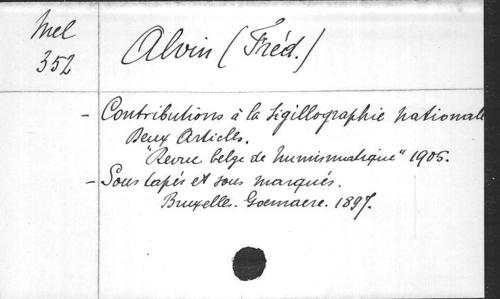 Mel
352
Alvin (Fréd.)
- Contributions à la Sigillographie nationale
Deux Articles.
"Revue belge de Numismatique" 1905.
- Sous tapés et sous marqués.
Bruxelle. Goemaere. 1897.